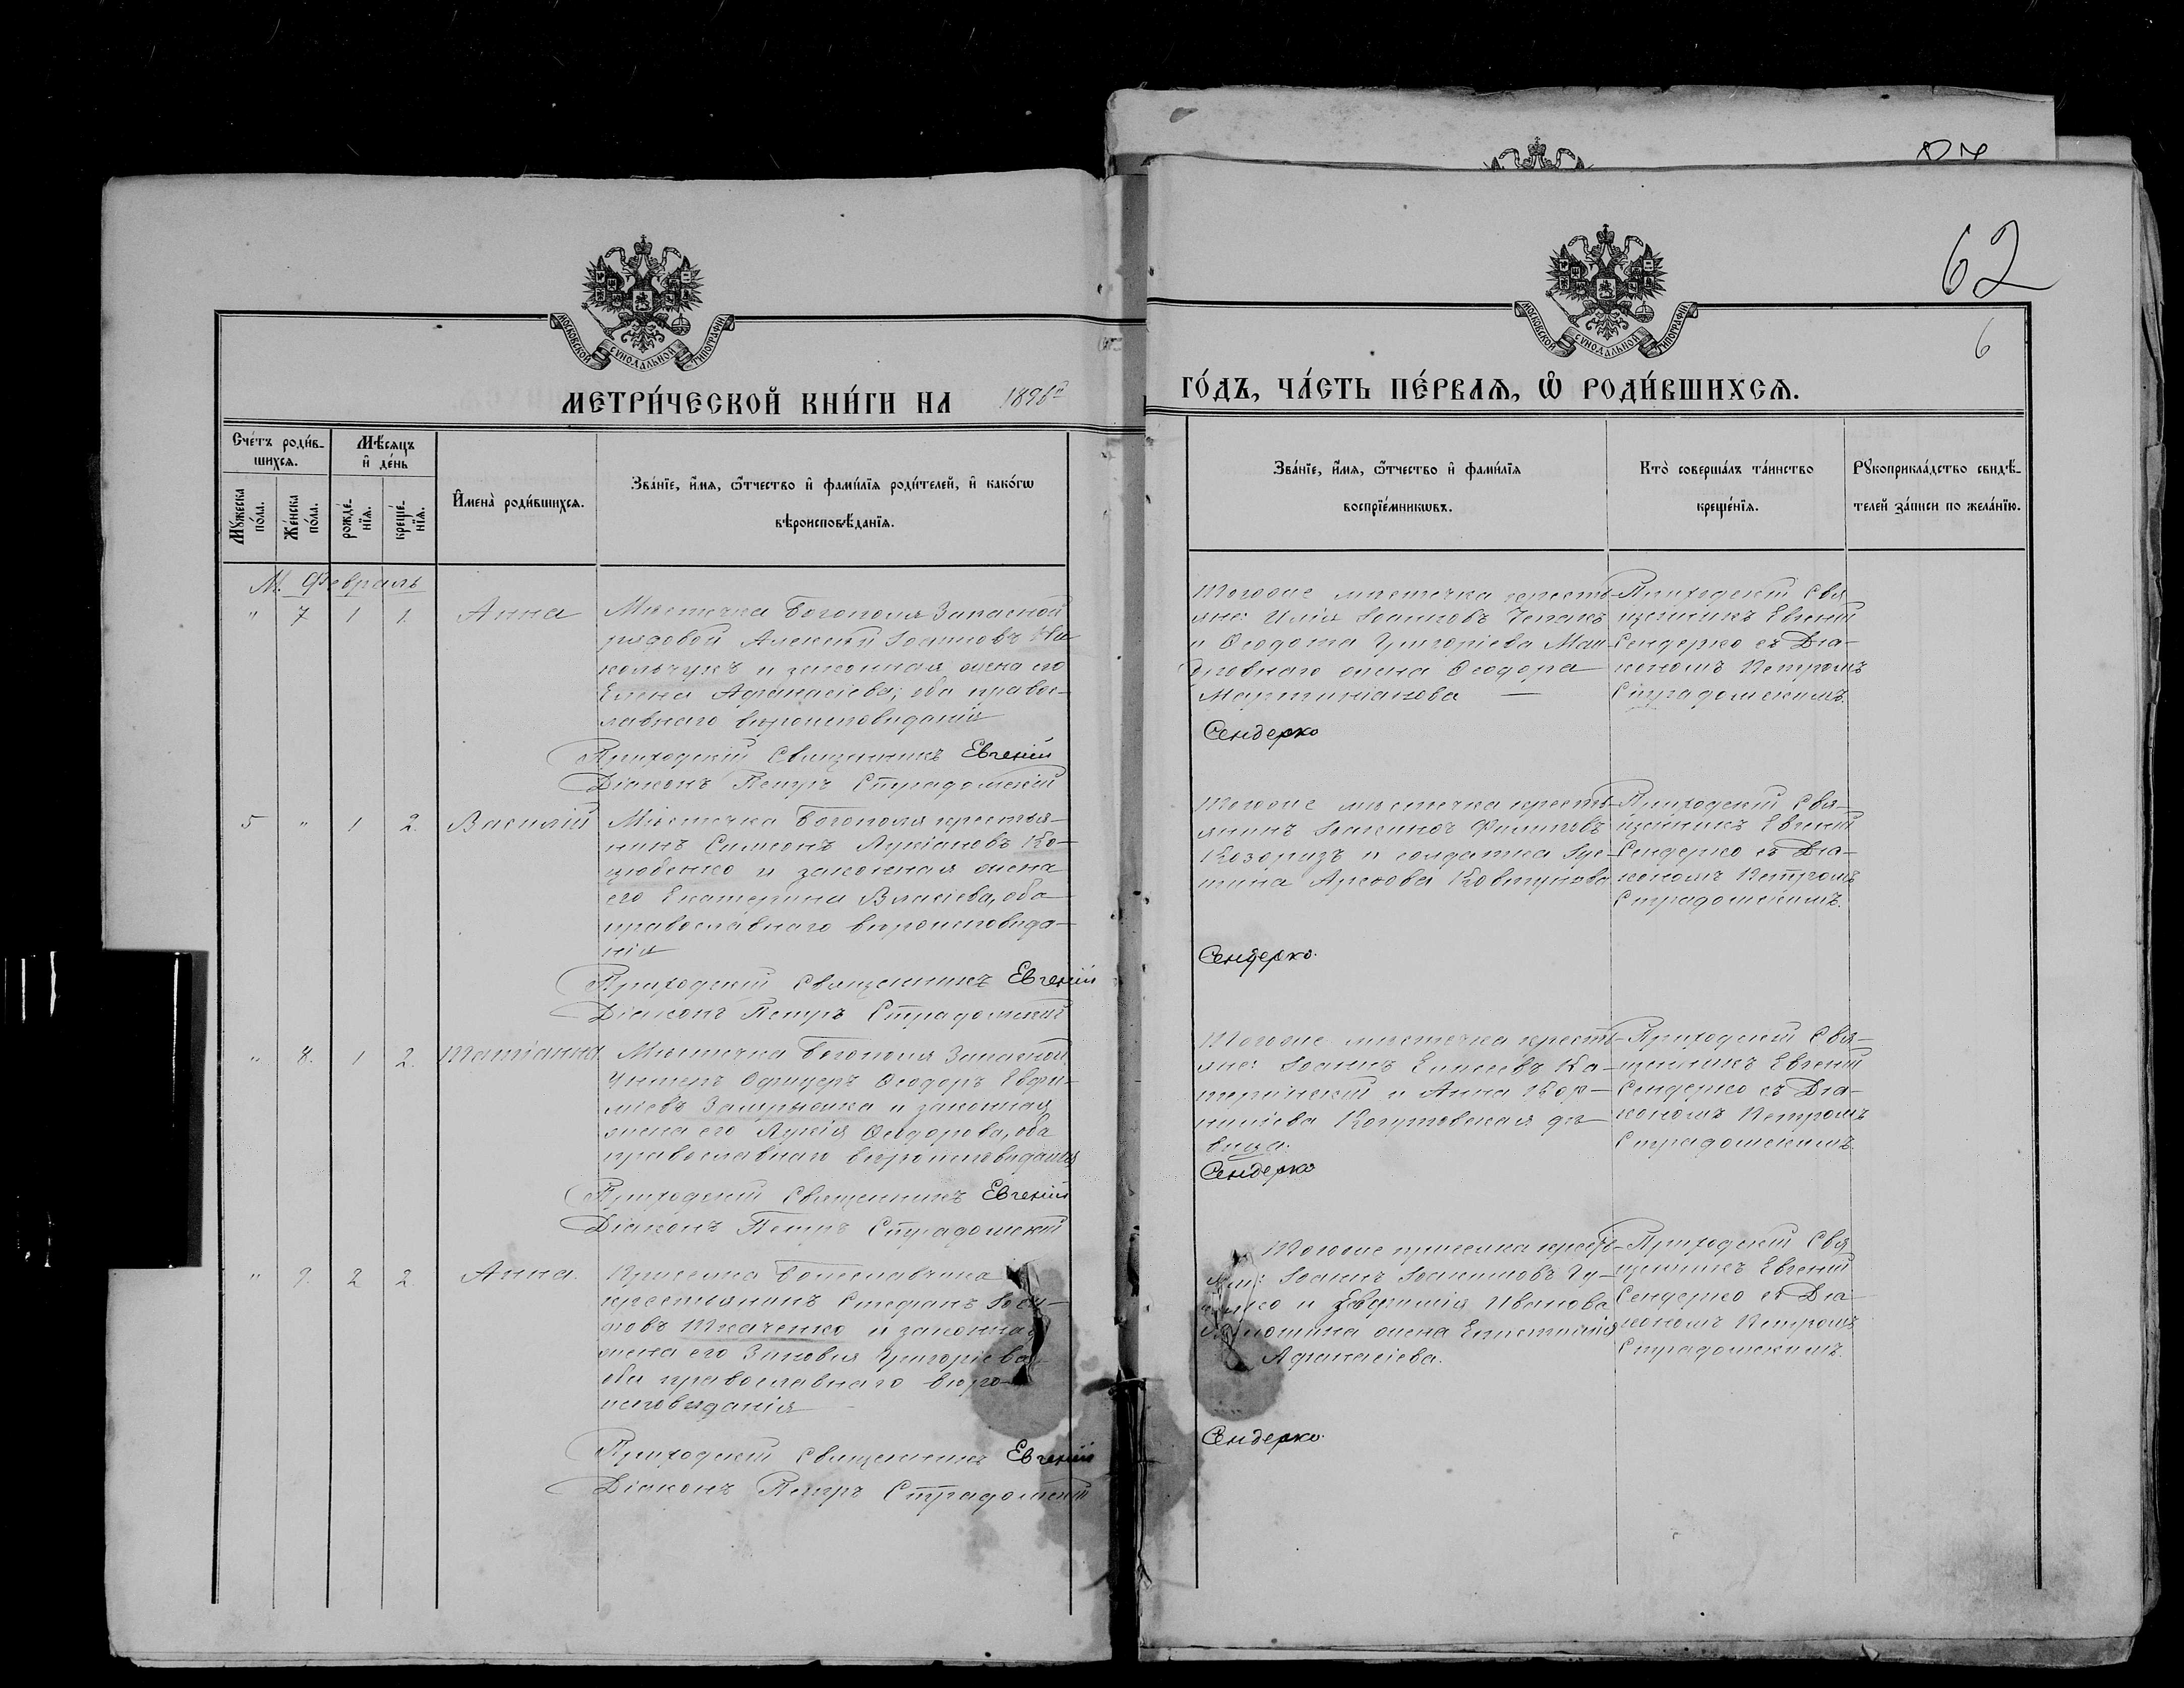 62
6
МОСКОВСКОЙ СѴНОДАЛЬНОЙ ТИПОГРАФІИ
МОСКОВСКОЙ СѴНОДАЛЬНОЙ ТИПОГРАФІИ
МЕТРИ́ЧЕСКОЙ КНИ́ГИ НА 1896й
ГО́ДЪ, ЧА́СТЬ ПЕ́РВАѦ, Ѽ РОДИ́ВШИХСѦ.
Сче́тъ роди́в-
шихсѧ.
Мѣ́сѧцъ
и҆ де́нь
Мꙋ́жеска
по́ла.
Же́нска
по́ла.
рожде́-
нїѧ.
креще́-
нїѧ.
И҆мена̀ роди́вшихсѧ.
Зва́нїе, и҆́мѧ, ѻ҆́тчество и҆ фами́лїѧ роди́телей, и҆ како́гѡ
вѣроисповѣ́данїѧ.
Зва́нїе, и҆́мѧ, ѻ҆́тчество и҆ фами́лїѧ
воспрїе́мникѡвъ.
Кто̀ соверша́лъ та́инство
креще́нїѧ.
Рꙋкоприкла́дство свидѣ́-
телей за́писи по жела́нїю.
М. Февраль
" 7 1 1. Анна
Мѣстечка Богополя Запасной
рядовой Алексѣй Іоанновъ Ни
кольчукъ и законная жена его
Елена Афанасіева; оба правос-
лавнаго вѣроисповѣданія
Приходскій Священникъ Евгеній
Діаконъ Петръ Страдомскій
Тогоже мѣстечка кресть-
яне: Илія Іоанновъ
и Ѳеодота Григоріева
жена Ѳеодора
Мартиніанова —
Сендерко
Приходскій Свя
щенникъ Евгеній
Сендерко съ Діа-
кономъ Петромъ
Страдомскимъ.
5 " 1 2. Василій
Мѣстечка Богополя крестья-
нинъ Симеонъ Лукіановъ Ко-
цюбенко и законная жена
его Екатерина Власіева, оба
православнаго вѣроисповѣда-
нія
Приходскій Священникъ Евгеній
Діаконъ Петръ Страдомскій
Тогоже мѣстечка кресть-
янинъ Іоакимъ Филиповъ
Козоризъ и солдатка Іус-
тина Ковтунова
Сендерко.
Приходскій Свя-
щенникъ Евгеній
Сендерко съ Діа-
кономъ Петромъ
Страдомскимъ.
" 8. 1 2. Татіанна
Мѣстечка Богополя Запасной
Унтеръ Офицеръ Ѳеодоръ Евфи-
міевъ и законная
жена его Лукія Ѳеодорова, оба
православнаго вѣроисповѣданія
Приходскій Священникъ Евгеній
Діаконъ Петръ Страдомскій
Тогоже мѣстечка кресть-
яне: Іоаннъ Елисеевъ Ка-
теринскій и Анна Кор-
нилiева Когутовская дѣ-
вица.
Сендерко
Приходскій Свя-
щенникъ Евгеній
Сендерко съ Діа-
кономъ Петромъ
Страдомскимъ.
" 9. 2 2. Анна.
Приселка Болеславчика
крестьянинъ Стефанъ Іоси-
фовъ Ткаченко и законная
жена его Зиновія Григоріева
оба православнаго вѣро-
исповѣданія
Приходскій Священникъ Евгеній
Діаконъ Петръ Страдомскій
Тогоже приселка кресть-
Іоаннъ Іоакимовъ
и Евфимія Иванова
жена Епистимія
Афанасіева.
Сендерко.
Приходскій Свя
щенникъ Евгеній
Сендерко съ Діа-
кономъ Петромъ
Страдомскимъ.